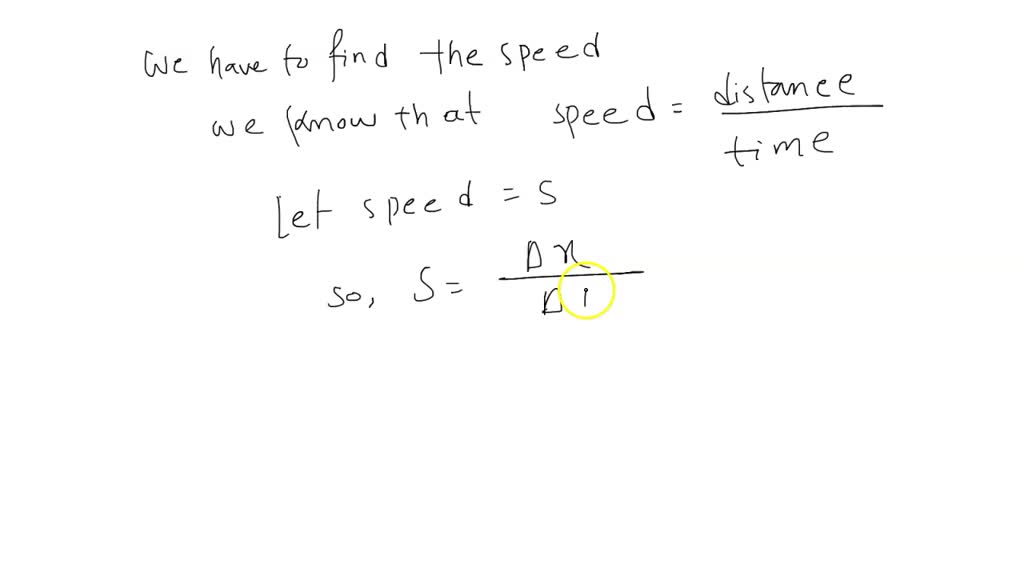 we have to find the speed
we know that speed = distance / time
Let speed = S
so, S = Δx / Δ